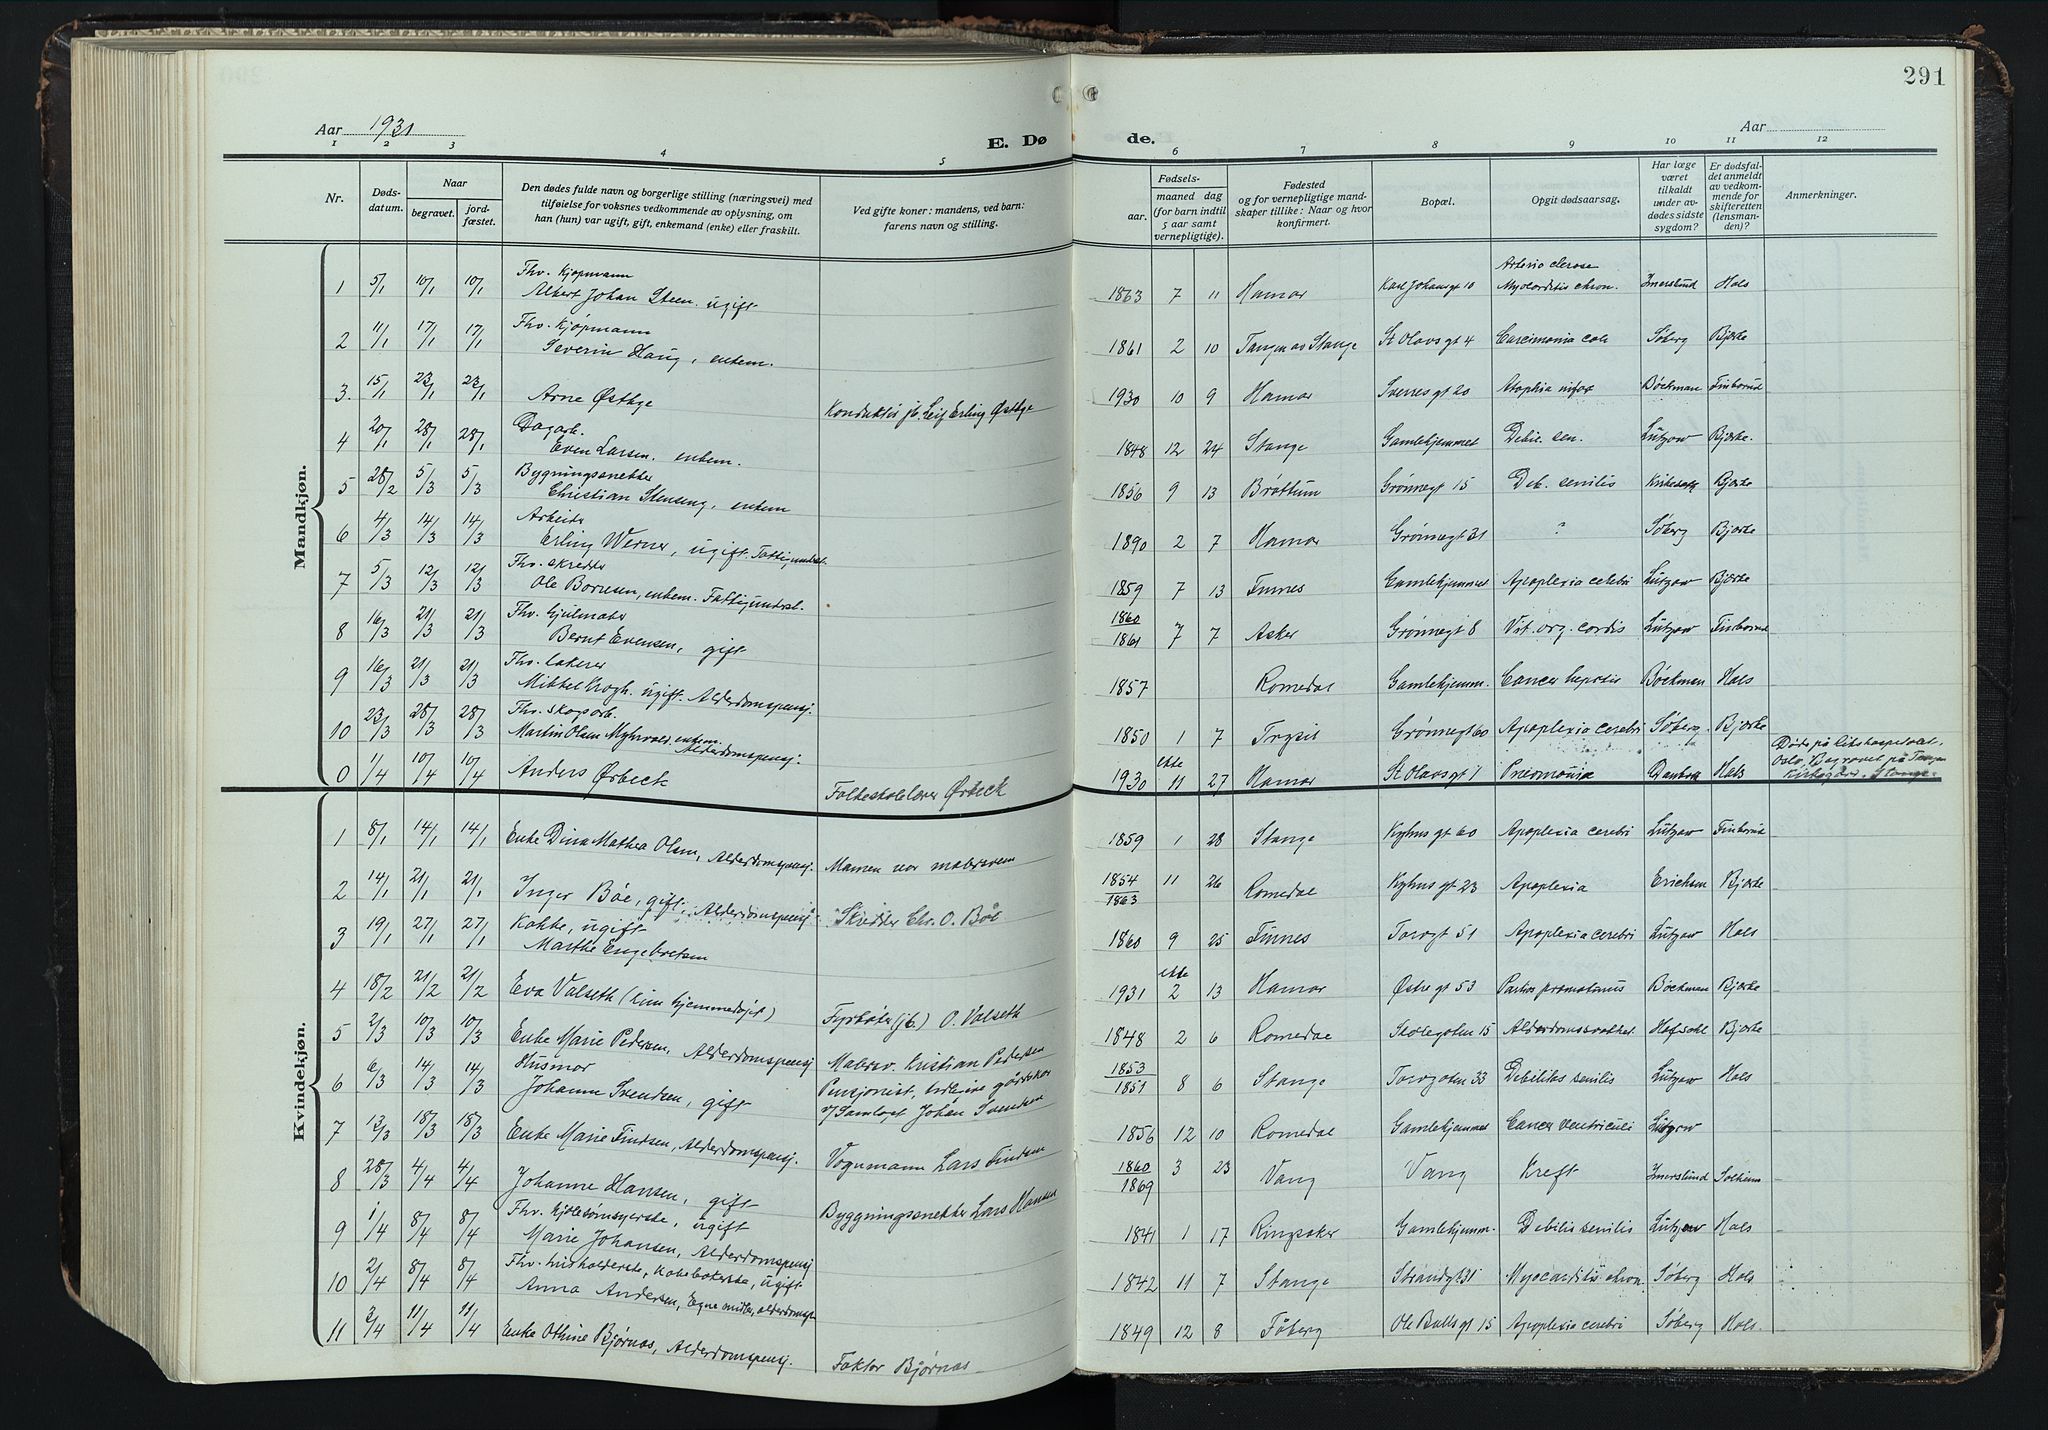 291
Aar 1931
E. Dø de.
Aar
1 2 3 4 5 6 7 8 9 10 11 12
Nr.
Døds-
datum.
Naar
begravet.
jord-
fæstet.
Den dødes fulde navn og borgerlige stilling (næringsvei) med
tilføielse for voksnes vedkommende av oplysning, om
han (hun) var ugift, gift, enkemand (enke) eller fraskilt.
Ved gifte koner: mandens, ved barn:
farens navn og stilling.
Fødsels-
aar.
maaned dag
(for barn indtil
5 aar samt
vernepligtige).
Fødested
og for vernepligtige mand-
skaper tillike: Naar og hvor
konfirmert.
Bopæl.
Opgit dødsaarsag.
Har læge
været
tilkaldt
under av-
dødes sidste
sygdom?
Er dødsfal-
det anmeldt
av vedkom-
mende for
skifteretten
(lensman-
den)?
Anmerkninger.
Mandkjøn.
1 5/1 10/1 10/1 Fhv. Kjøpmann
Albert Johan Steen. ugift 1863 7 11 Hamar Karl Johansgt 10 Myocarditis chron. Imerslund Hals
2 11/1 17/1 17/1 Fhv. Kjøpmann
Severin Haug, enkem. 1861 2 10 Tangen av Stange St Olavsgt 4 Søberg Bjørke
3. 15/1 23/1 23/1 Arne Østbye Leif Erling Østbye 1930 10 9 Hamar Sverresgt 20 Bøckman Finborud
4 20/1 28/1 28/1 Dagarb.
Even Larsen. enkem. 1848 12 24 Stange Gamlehjemmet Debil. sen. Lützow Bjørke.
5 28/2 5/3 5/3 Bygningssnekker
Christian Stenseng, enkem 1856 9 13 Brøttum Grønnegt 15 Deb. senilis Bjørke
6 4/3 14/3 14/3 Arbeider
Erling Werner, ugift. Fattigunderst. 1890 2 7 Hamar Grønnegt 31 ? Søberg Bjørke
7 5/3 12/3 12/3 Fhv. skredder
Ole Bornesen, enkem. Fattigunderst. 1859 7 13 Furnes Gamlehjemmet Apoplexia cerebri Lützow Bjørke
8 16/3 21/3 21/3 Fhv. hjulmaker
Bernt Evensen, gift 1860
1861 7 7 Asker Grønnegt 8 Vit. org. cordis Lützow Finborud
9 16/3 21/3 21/3 Fhv. lakerer
Mikkel Krogh. ugift. Alderdomspensj. 1857 Romedal Gamlehjemm. Cancer hepatis Bøckman Hals
10 23/3 28/3 28/3 Fhv. skogsarb.
Martin Olsen Myhrvold, enkem.
Alderdomspensj. 1850 1 7 Trysil Grønnegt 60 Apoplexia cerebri Søberg Bjørke
0 1/4 10/4 10/4 Anders Ørbeck Folkeskolelærer Ørbeck 1930 ekte 11 27 Hamar St Olavsgt 1 Pneumonia Hals Døde på Rikshospitalet,
Oslo. Begravet på Tangen
Kirkegård. Stange.
Kvindekjøn.
1 8/1 14/1 14/1 Enke Dina Mathea Olsen, Alderdomspensj. Mannen var malersvenn 1859 1 28 Stange Kyhns gt 60 Apoplexia cerebri Lützow Finborud
2 14/1 21/1 21/1 Inger Bøe, gift, Alderdomspensj. Skredder Chr. O. Bøe 1854
1863 11 26 Romedal Kyhns gt 23 Apoplexia Erichsen Bjørke
3 19/1 27/1 27/1 Kokke, ugift
Marthe Engebretsen 1860 9 25 Furnes Torvgt 51 Apoplexia cerebri Lützow Hals
4 18/2 21/2 21/2 Eva Valseth (kun hjemmedøpt) Fyrbøter (jb.) O. Valseth 1931 ekte 2 13 Hamar Østre gt 53 Partus prematurus Bøckman Bjørke
5 2/3 10/3 10/3 Enke Marie Pedersen, Alderdomspensj Malersv. Kristian Pedersen 1848 2 6 Romedal Skolegaten 15 Alderdomssvakhet Bjørke
6 6/3 14/3 14/3 Husmor
Johanne Svendsen, gift Pensjonist, tidligere gårdskar
v/Samlaget Johan Svendsen 1853
1851 8 6 Stange Torvgaten 33 Debilitas senilis Lützow Hals
7 13/3 18/3 18/3 Enke Marie Findsen, Alderdomspensj. Vognmann Lars Findsen 1856 12 10 Romedal Gamlehjemmet Cancer ventriculi Lützow
8 28/3 4/4 4/4 Johanne Hansen, gift Byggningssnekker Lars Hansen 1860
1869 3 23 Vang Vang Kreft Imerslund Solheim
9 1/4 8/4 8/4 Fhv. Kjolesømsyerske, ugift
Marie Johansen, Alderdomspensj 1841 1 17 Ringsaker Gamlehjemm. Debilis senilis Lützow Hals
10 2/4 8/4 8/4 Fhv. husholderske, Kakebakerske, ugift
Anna Andersen, Egne midler, alderdomsp. 1842 11 7 Stange Strandgt 31 Myocarditis chron Søberg Hals
11 3/4 11/4 11/4 Enke Othine Bjørnås, Alderdomspensj. Faktor Bjørnås 1849 12 8 Fåberg Ole Bulls gt 15 Apoplexia cerebri Søberg Hals.